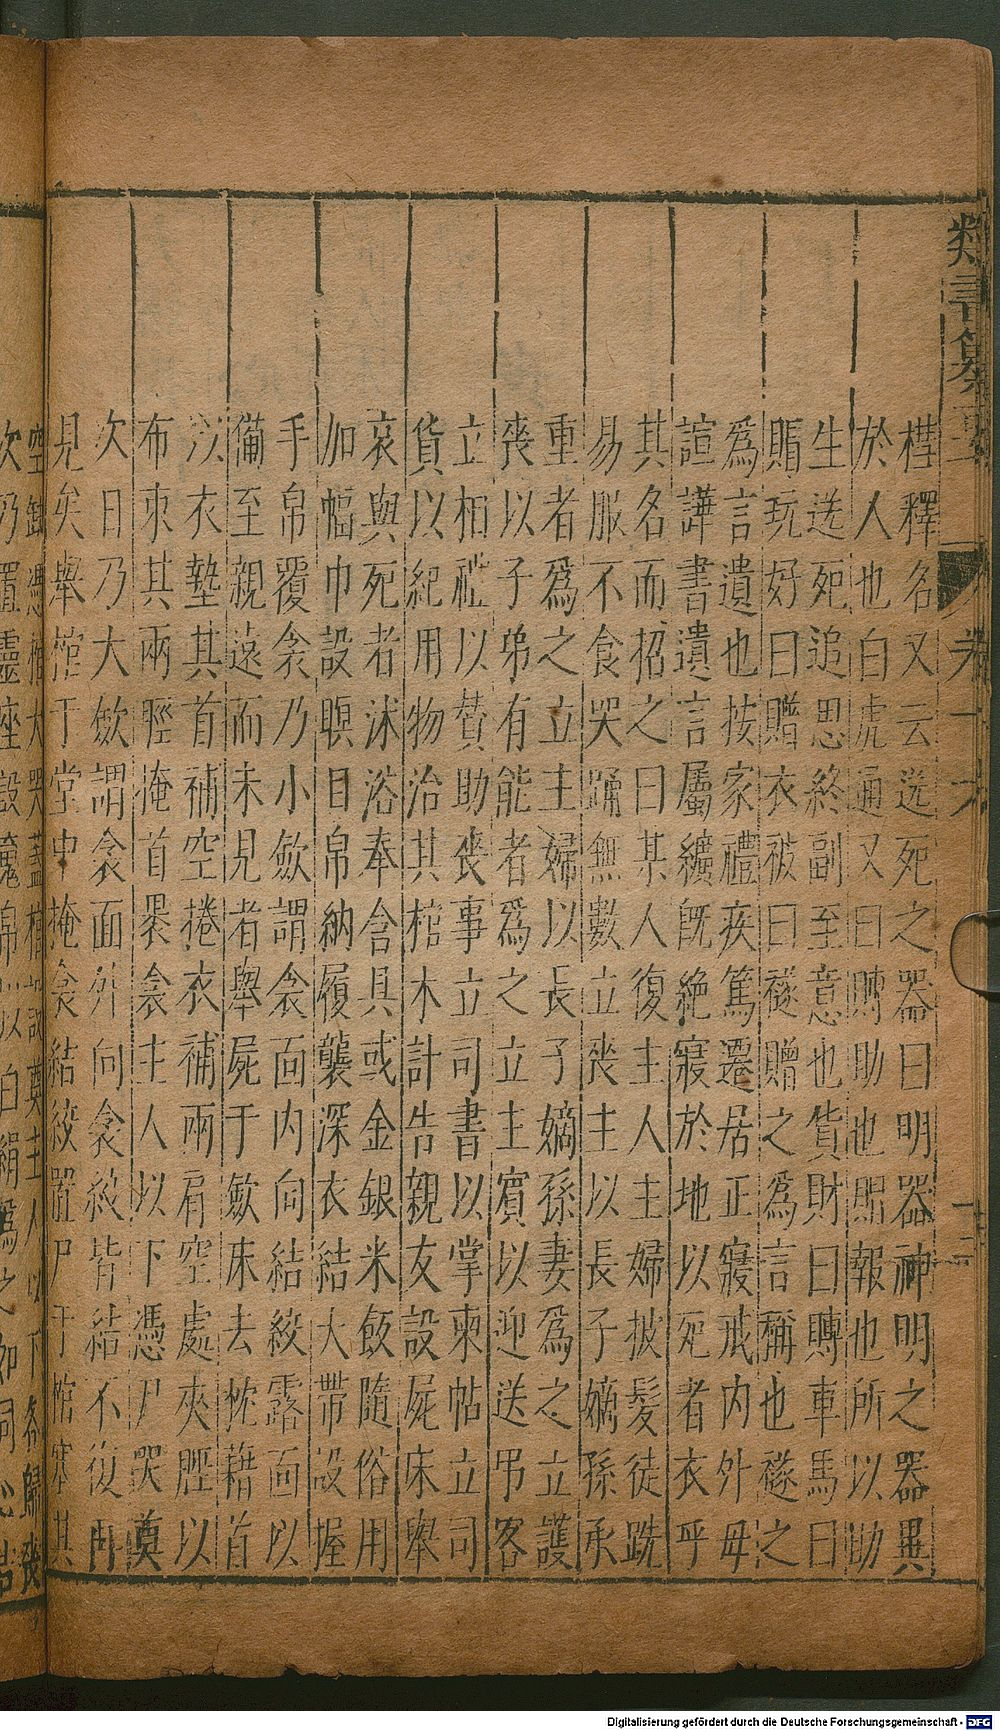 類書纂要 卷十六 十二
釋名又云送死之器曰明器神明之器異
於人也白虎通又曰賻助也賵報也所以助
生送死追思終副至意也貨財曰賻車馬曰
賵玩好曰贈衣被曰襚贈之為言稱也襚之
為言遺也按家禮疾篤遷居正寢戒内外毋
諠譁書遺言屬纊既絶寢於地以死者衣乎
其名而招之曰某人復主人主婦披髮徒跣
易服不食哭踊無數立喪主以長子嫡孫承
重者為之立主婦以長子嫡孫妻為之立護
喪以子弟有能者為之立主賓以迎送吊客
立相礼以賛助喪事立司書以掌柬帖立司
貨以紀用物治其棺木計告親友設屍床舉
哀與死者沐浴奉含具或金銀米飯隨俗用
加幅巾設瞑目帛納履襲深衣結大帶設握
手帛覆衾乃小斂謂衾面内向結絞露面以
備至親遠而未見者舉屍于斂床去枕藉首
以衣墊其首補空捲衣補兩肩空處夾脛以
布束其兩脛掩首褁衾主人以下憑尸哭奠
次日乃大斂謂衾面外向衾絞皆結不復冉
見矣舉棺于堂中掩衾結絞置尸于棺塞其
空缺憑棺大哭蓋棺設奠主人以下各歸喪
次乃置靈座設魂帛以白絹為之如同心結
Digitalisierung gefördert durch die Deutsche Forschungsgemeinschaft - DFG